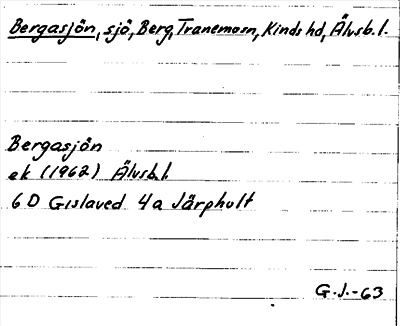 Bergasjön, sjö, Berg, Tranemo sn, Kinds hd, Älvsb. l.
Bergasjön
ek (1962) Älvsb. l.
6 D Gislaved 4a Järphult
G.J.-63